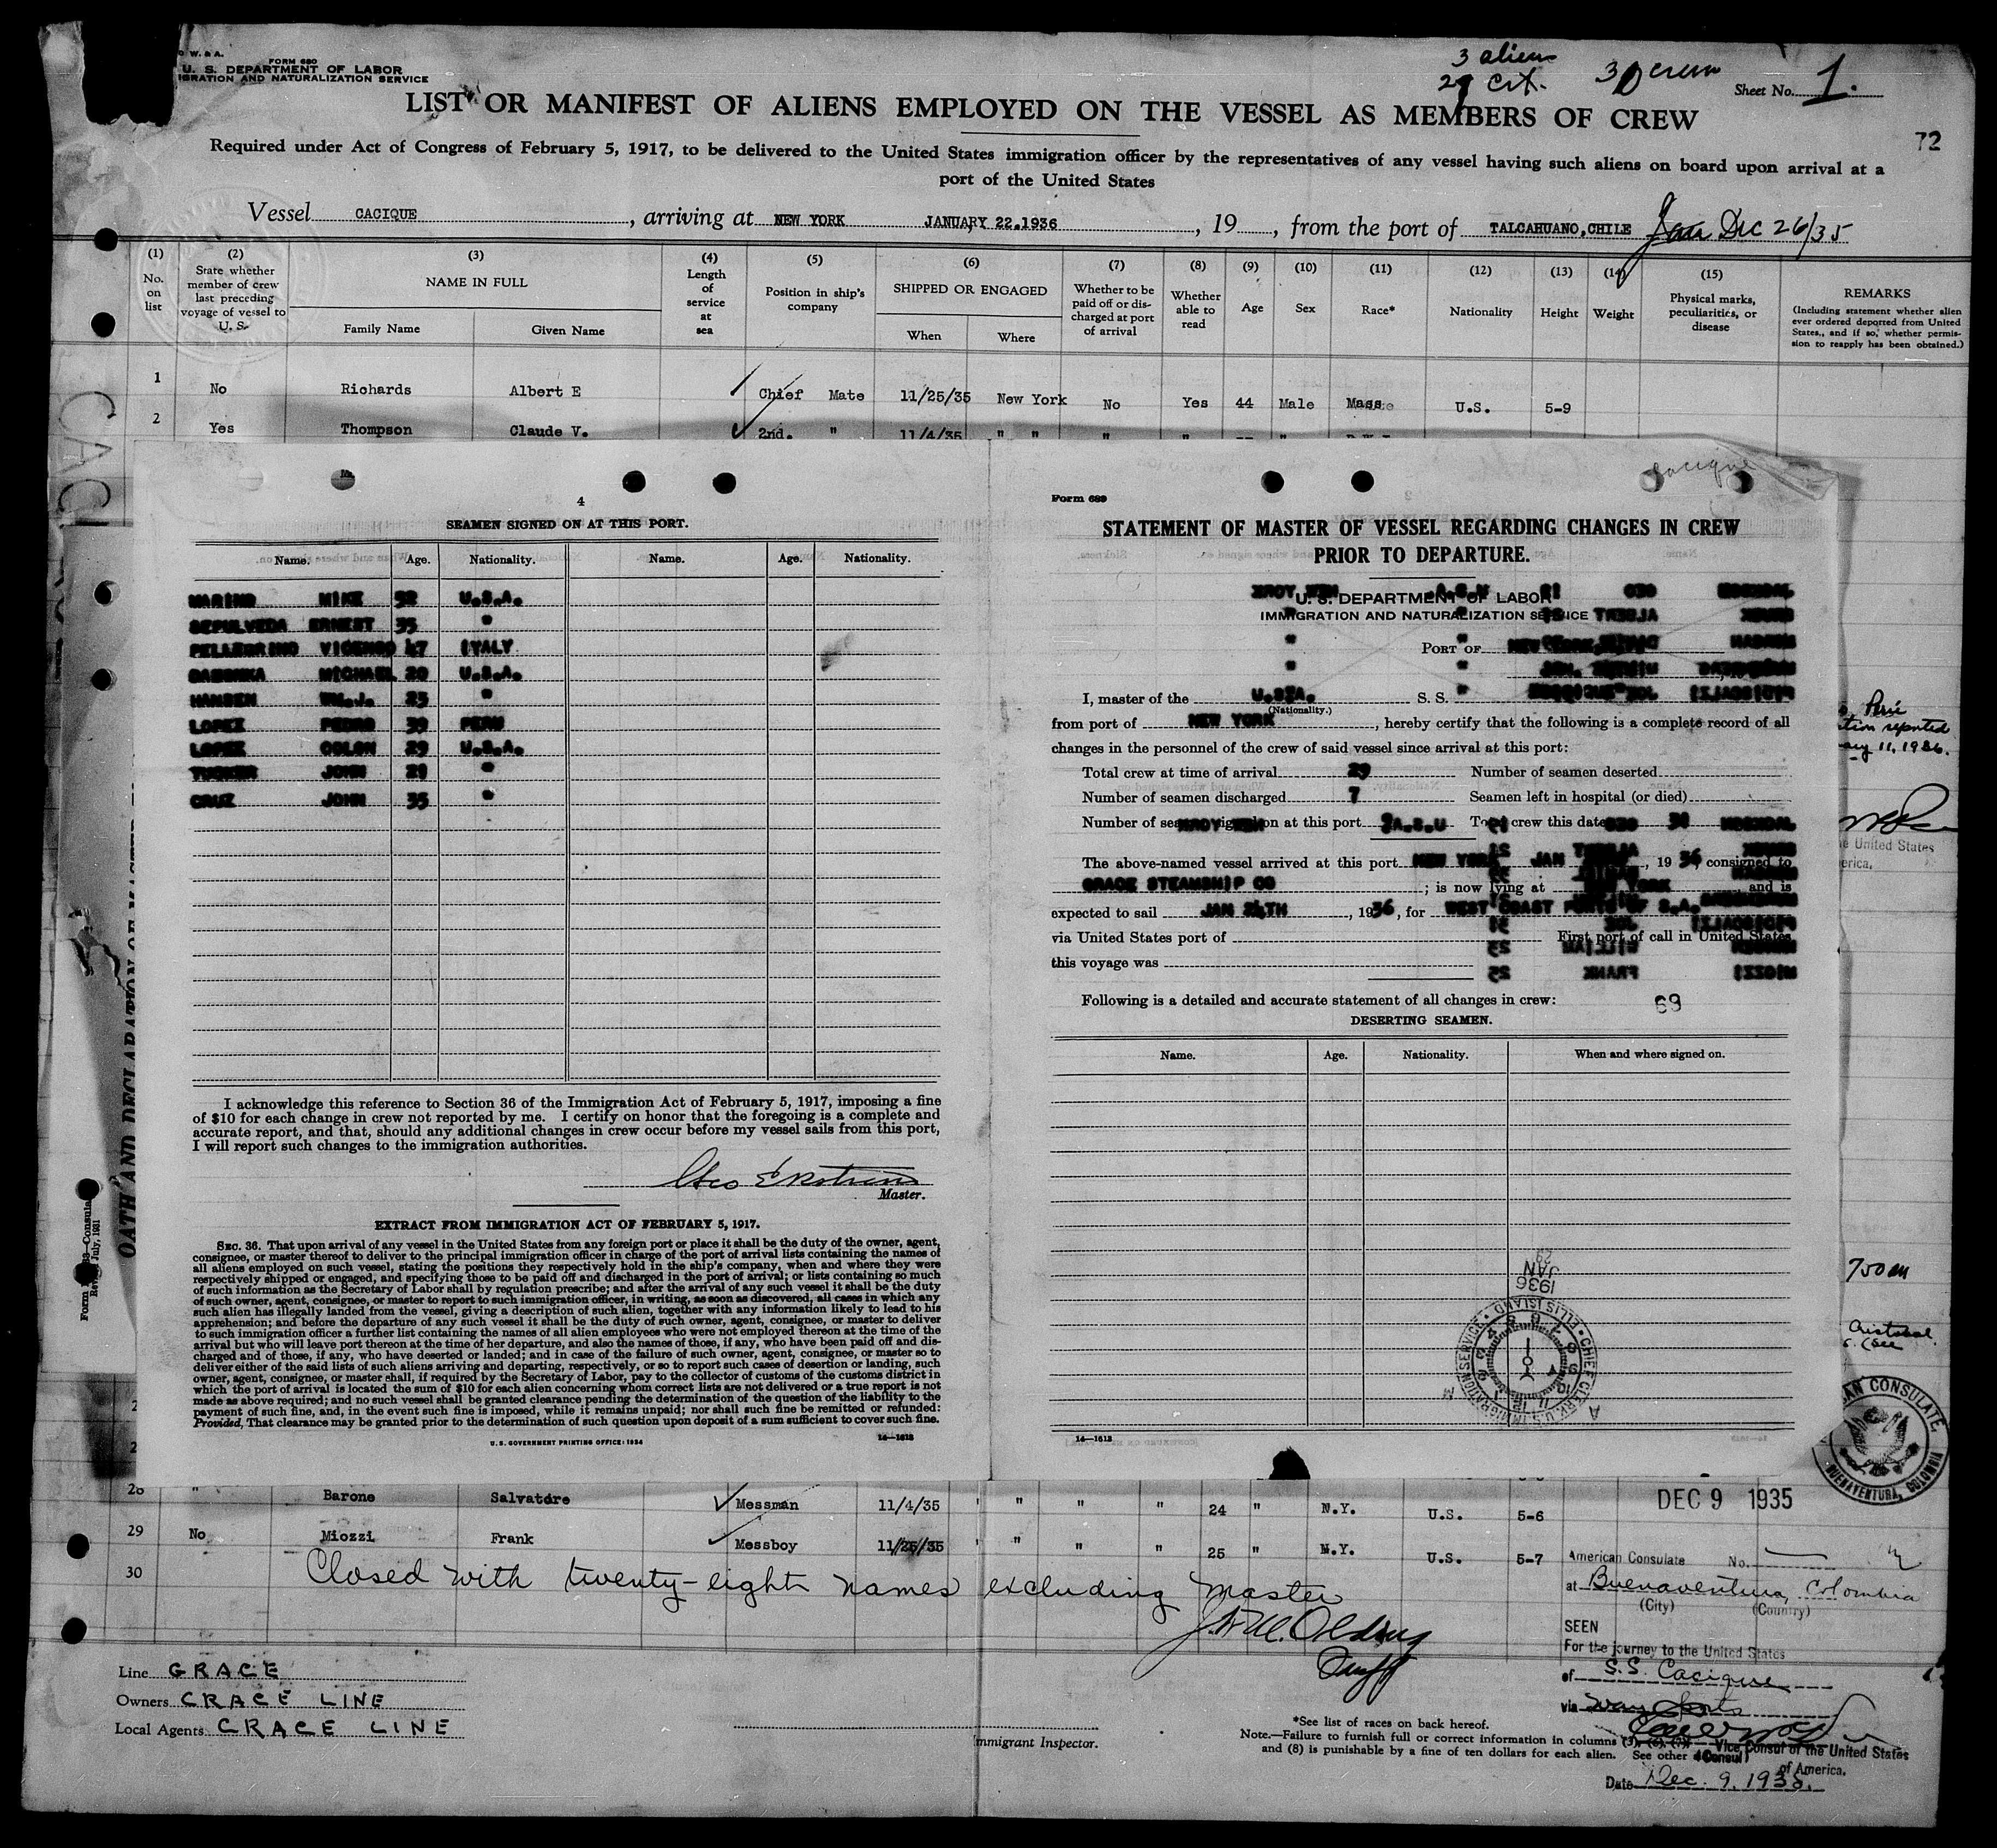 FORM 680
U. S. DEPARTMENT OF LABOR
IGRATION AND NATURALIZATION SERVICE
3 aliens
Cit.
crew
Sheet No. 1.
LIST OR MANIFEST OF ALIENS EMPLOYED ON THE VESSEL AS MEMBERS OF CREW
72
Required under Act of Congress of February 5, 1917, to be delivered to the United States immigration officer by the representatives of any vessel having such aliens on board upon arrival at a
port of the United States
Vessel CACIQUE, arriving at NEW YORK JANUARY 22.1936, 19, from the port of TALCAHUANO,CHILE Dec 26/35
(1) (2) (3) (4) (5) (6) (7) (8) (9) (10) (11) (12) (13) (14) (15)
No. on list
State whether member of crew last preceding voyage of vessel to U. S.
NAME IN FULL
Family Name Given Name
Length of service at sea
Position in ship's company
SHIPPED OR ENGAGED
When Where
Whether to be paid off or discharged at port of arrival
Whether able to read
Age
Sex
Race*
Nationality
Height
Weight
Physical marks, peculiarities, or disease
REMARKS
(Including statement whether alien ever ordered deported from United States, and if so, whether permission to reapply has been obtained.)
1 No Richards Albert E Chief Mate 11/25/35 New York No Yes 44 Male Mass U.S. 5-9
2 Yes Thompson Claude V. 2nd. " 11/4/35 " "
CACI
4
SEAMEN SIGNED ON AT THIS PORT.
Name. Age. Nationality. Name. Age. Nationality.
MARINO MIKE 52 U.S.A.
SEPULVEDA ERNEST 35 "
PELLEGRINO VICENZO 47 ITALY
MICHAEL 20 U.S.A.
HANSEN WM.J. 25 "
LOPEZ PEDRO 39 PERU
LOPEZ COLON 29 U.S.A.
TUCKER JOHN 29 "
CRUZ JOHN 35 "
I acknowledge this reference to Section 36 of the Immigration Act of February 5, 1917, imposing a fine
of $10 for each change in crew not reported by me. I certify on honor that the foregoing is a complete and
accurate report, and that, should any additional changes in crew occur before my vessel sails from this port,
I will report such changes to the immigration authorities.
Master.
EXTRACT FROM IMMIGRATION ACT OF FEBRUARY 5, 1917.
SEC. 36. That upon arrival of any vessel in the United States from any foreign port or place it shall be the duty of the owner, agent,
consignee, or master thereof to deliver to the principal immigration officer in charge of the port of arrival lists containing the names of
all aliens employed on such vessel, stating the positions they respectively hold in the ship's company, when and where they were
respectively shipped or engaged, and specifying those to be paid off and discharged in the port of arrival; or lists containing so much
of such information as the Secretary of Labor shall by regulation prescribe; and after the arrival of any such vessel it shall be the duty
of such owner, agent, consignee, or master to report to such immigration officer, in writing, as soon as discovered, all cases in which any
such alien has illegally landed from the vessel, giving a description of such alien, together with any information likely to lead to his
apprehension; and before the departure of any such vessel it shall be the duty of such owner, agent, consignee, or master to deliver
to such immigration officer a further list containing the names of all alien employees who were not employed thereon at the time of the
arrival but who will leave port thereon at the time of her departure, and also the names of those, if any, who have been paid off and dis-
charged and of those, if any, who have deserted or landed; and in case of the failure of such owner, agent, consignee, or master so to
deliver either of the said lists of such aliens arriving and departing, respectively, or so to report such cases of desertion or landing, such
owner, agent, consignee, or master shall, if required by the Secretary of Labor, pay to the collector of customs of the customs district in
which the port of arrival is located the sum of $10 for each alien concerning whom correct lists are not delivered or a true report is not
made as above required; and no such vessel shall be granted clearance pending the determination of the question of the liability to the
payment of such fine, and, in the event such fine is imposed, while it remains unpaid; nor shall such fine be remitted or refunded:
Provided, That clearance may be granted prior to the determination of such question upon deposit of a sum sufficient to cover such fine.
U.S. GOVERNMENT PRINTING OFFICE: 1934 14—1613
Cacique
Form 689
STATEMENT OF MASTER OF VESSEL REGARDING CHANGES IN CREW
PRIOR TO DEPARTURE.
U. S. DEPARTMENT OF LABOR
IMMIGRATION AND NATURALIZATION SERVICE
PORT OF NEW YORK
I, master of the U.S.A. S. S.
(Nationality.)
from port of NEW YORK, hereby certify that the following is a complete record of all
changes in the personnel of the crew of said vessel since arrival at this port:
Total crew at time of arrival 29 Number of seamen deserted
Number of seamen discharged 7 Seamen left in hospital (or died)
Number of seamen signed on at this port 9 Total crew this date
The above-named vessel arrived at this port NEW YORK JAN, 1936, consigned to
GRACE STEAMSHIP CO; is now lying at NEW YORK and is
expected to sail JAN 24TH, 1936, for WEST COAST PORTS OF S.A.
via United States port of First port of call in United States
this voyage was
Following is a detailed and accurate statement of all changes in crew:
69
DESERTING SEAMEN.
Name. Age. Nationality. When and where signed on.
1936
JAN
29
CHIEF CLERK U.S. IMMIGRATION SERVICE • ELLIS ISLAND
14—1613
OATH AND DECLARATION OF MASTER
Form
Consular
July, 1931
reported
11, 1936.
United States
750 m
Cristobal
AN CONSULATE
BUENAVENTURA, COLOMBIA
28 " Barone Salvatore Messman 11/4/35 " " " " 24 " N.Y. U.S. 5-6
29 No Miozzi Frank Messboy 11/25/35 " " " " 25 " N.Y. U.S. 5-7
30
Closed with twenty-eight names excluding master
DEC 9 1935
American Consulate No.
at Buenaventura, Colombia
(City) (Country)
SEEN
For the journey to the United States
of S.S. Cacique
via way ports
Vice Consul of the United States
of America.
Date Dec. 9, 1935.
Line GRACE
Owners GRACE LINE
Local Agents GRACE LINE
Immigrant Inspector.
*See list of races on back hereof.
Note.—Failure to furnish full or correct information in columns (3), (6), (7)
and (8) is punishable by a fine of ten dollars for each alien. See other